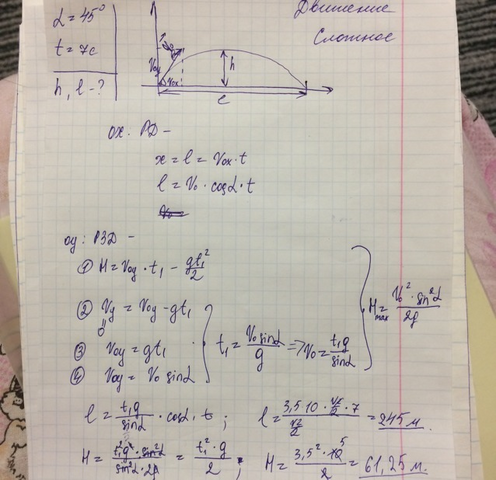 Движение
Сложное
α = 45°
t = 7c
h, l - ?
V₀y
V₀x
h
l
ox: РД -
x = l = V₀x · t
l = V₀ · cosα · t
oy: РЗД -
① H = V₀y · t₁ - gt₁²/2
② Vy = V₀y - gt₁
0
③ V₀y = gt₁
④ V₀y = V₀ sinα
t₁ = V₀ sinα/g => V₀ = t₁g/sinα
Hmax = V₀² · sin²α/2g
l = t₁g/sinα · cosα · t ; l = (3,5 · 10 · √2/2 · 7)/(√2/2) = 245 м.
H = t₁² g² · sin²α/sin²α · 2g = t₁² · g/2 ; H = 3,5² · 10 5/2 = 61,25 м.